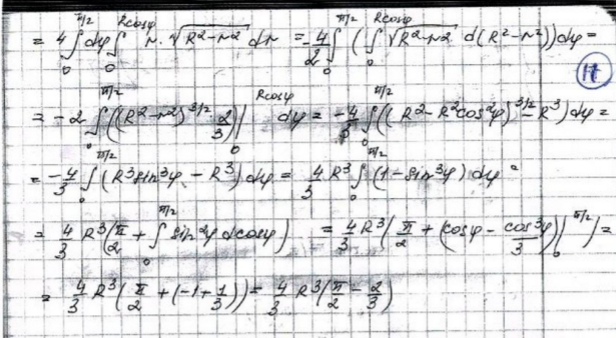 = 4 ∫₀^{π/2} dφ ∫₀^{R cosφ} r · √(R²−r²) dr = −4/2 ∫₀^{π/2} ( ∫₀^{R cosφ} √(R²−r²) d(R²−r²)) dφ =
= −2 ∫₀^{π/2} ((R²−r²)^{3/2} · 2/3) |₀^{R cosφ} dφ = −4/3 ∫₀^{π/2} ((R²−R²cos²φ)^{3/2} − R³) dφ =
= −4/3 ∫₀^{π/2} (R³sin³φ − R³) dφ = 4/3 R³ ∫₀^{π/2} (1−sin³φ) dφ =
= 4/3 R³ (π/2 + ∫₀^{π/2} sin²φ dcosφ) = 4/3 R³ (π/2 + (cosφ − cos³φ/3) |₀^{π/2}) =
= 4/3 R³ (π/2 + (−1 + 1/3)) = 4/3 R³ (π/2 − 2/3)